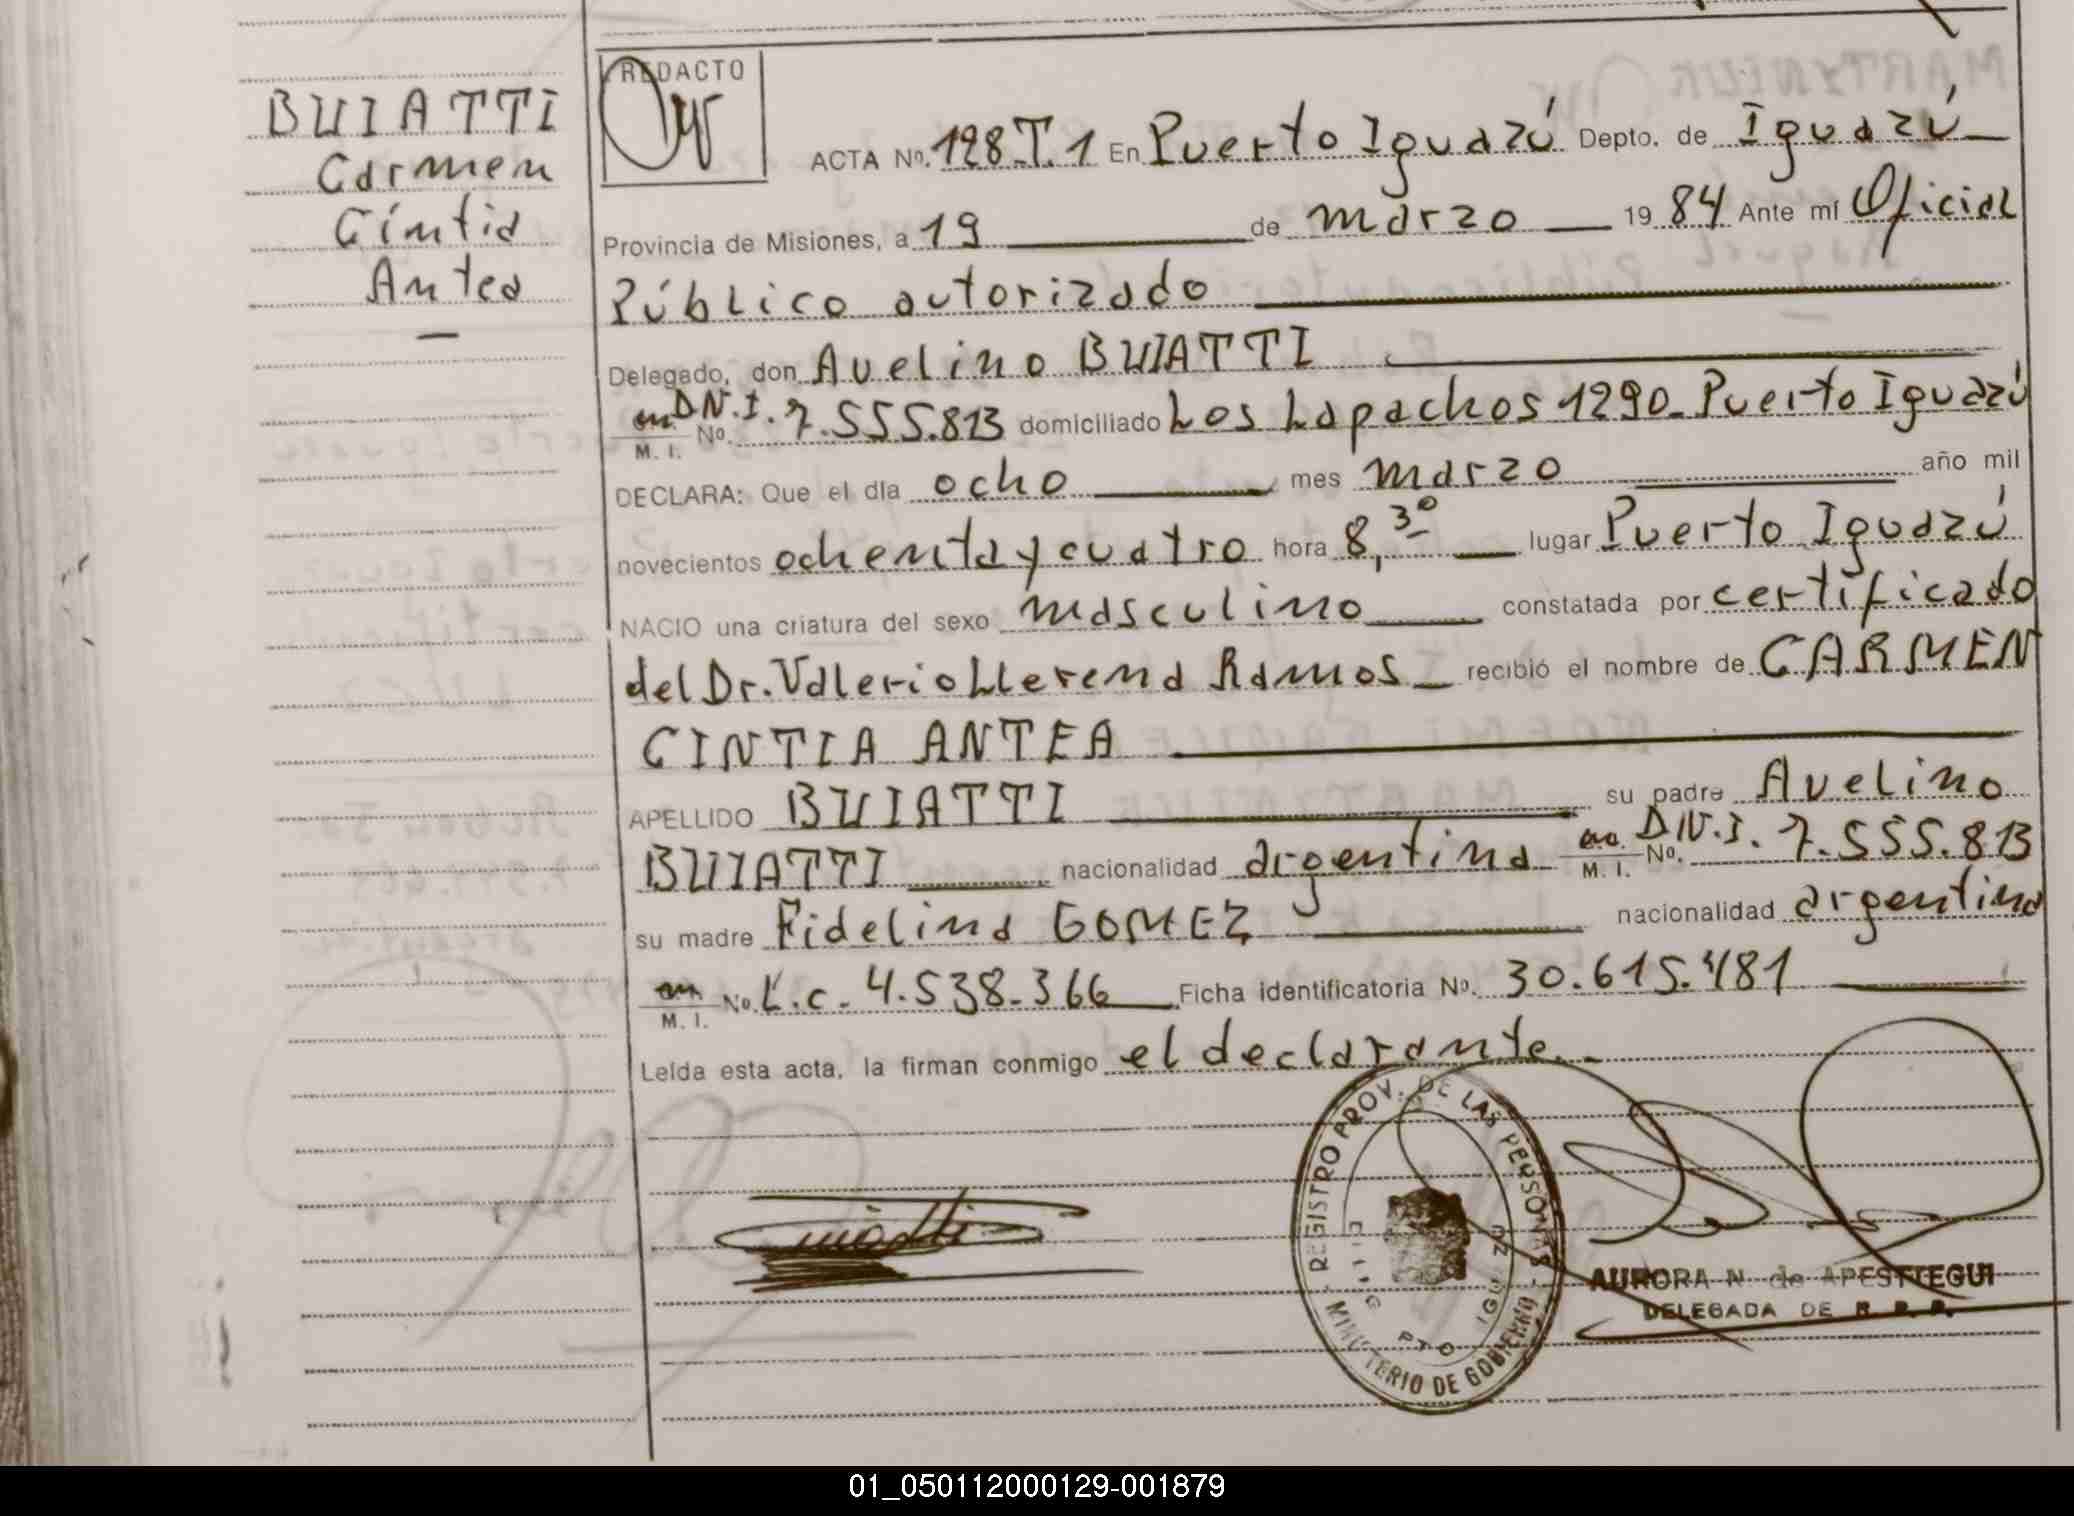 BUIATTI
Carmen
Cíntia
Antea
REDACTO
ACTA Nº. 128 T.1 En Puerto Iguazú Depto. de Iguazú
Provincia de Misiones, a 19 de marzo 19 84 Ante mí Oficial
Público autorizado
Delegado, don Avelino BUIATTI
M. I. Nº. D.N.I. 7.555.813 domiciliado Los Lapachos 1290. Puerto Iguazú
DECLARA: Que el día ocho mes marzo año mil
novecientos ochenta y cuatro hora 8,30 lugar Puerto Iguazú
NACIO una criatura del sexo masculino constatada por certificado
del Dr. Valerio Llerena Ramos recibió el nombre de CARMEN
CINTIA ANTEA
APELLIDO BUIATTI su padre Avelino
BUIATTI nacionalidad argentina M. I. Nº. D.N.I. 7.555.813
su madre Fidelina GOMEZ nacionalidad argentina
M. I. Nº. L.c. 4.538.366 Ficha identificatoria Nº. 30.615.481
Leída esta acta, la firman conmigo el declarante.
REGISTRO PROV. DE LAS PERSONAS - MINISTERIO DE GOBIERNO
PTO IGUAZU
AURORA N. de APESTEGUI
DELEGADA DE R. P. P.
01_050112000129-001879